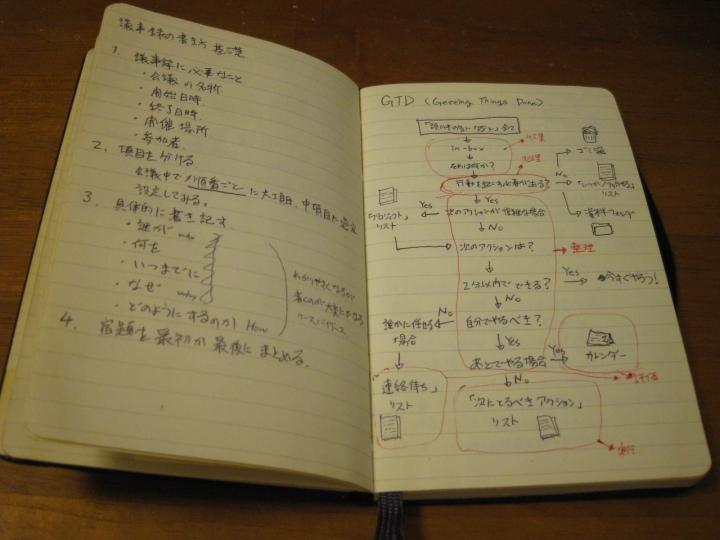 議事録の書き方 基礎
1. 議事録に必要なこと
・会議の名称
・開始日時
・終了日時
・開催場所
・参加者
2. 項目を分ける
会議中で順番ごとに大項目、中項目に
設定してみる。
3. 具体的に書き記す
・誰が who
・何を
・いつまでに
・なぜ why
・どのようにするのか How
4. 宿題を最初か最後にまとめる。
GTD (Getting Things Done)
全て
in-box
それは何か?
収集
行動を起こす必要がある?
処理
No
ゴミ箱
リスト
資料フォルダ
Yes
次のアクションが複雑な場合
Yes
「プロジェクト」
リスト
No
次のアクションは?
整理
2分以内でできる?
Yes
今すぐやろう!
No
自分でやるべき?
No
誰かに任せる
場合
Yes
あとでやる場合
Yes
カレンダー
No
「連絡待ち」
リスト
「次にとるべきアクション」
リスト
実行